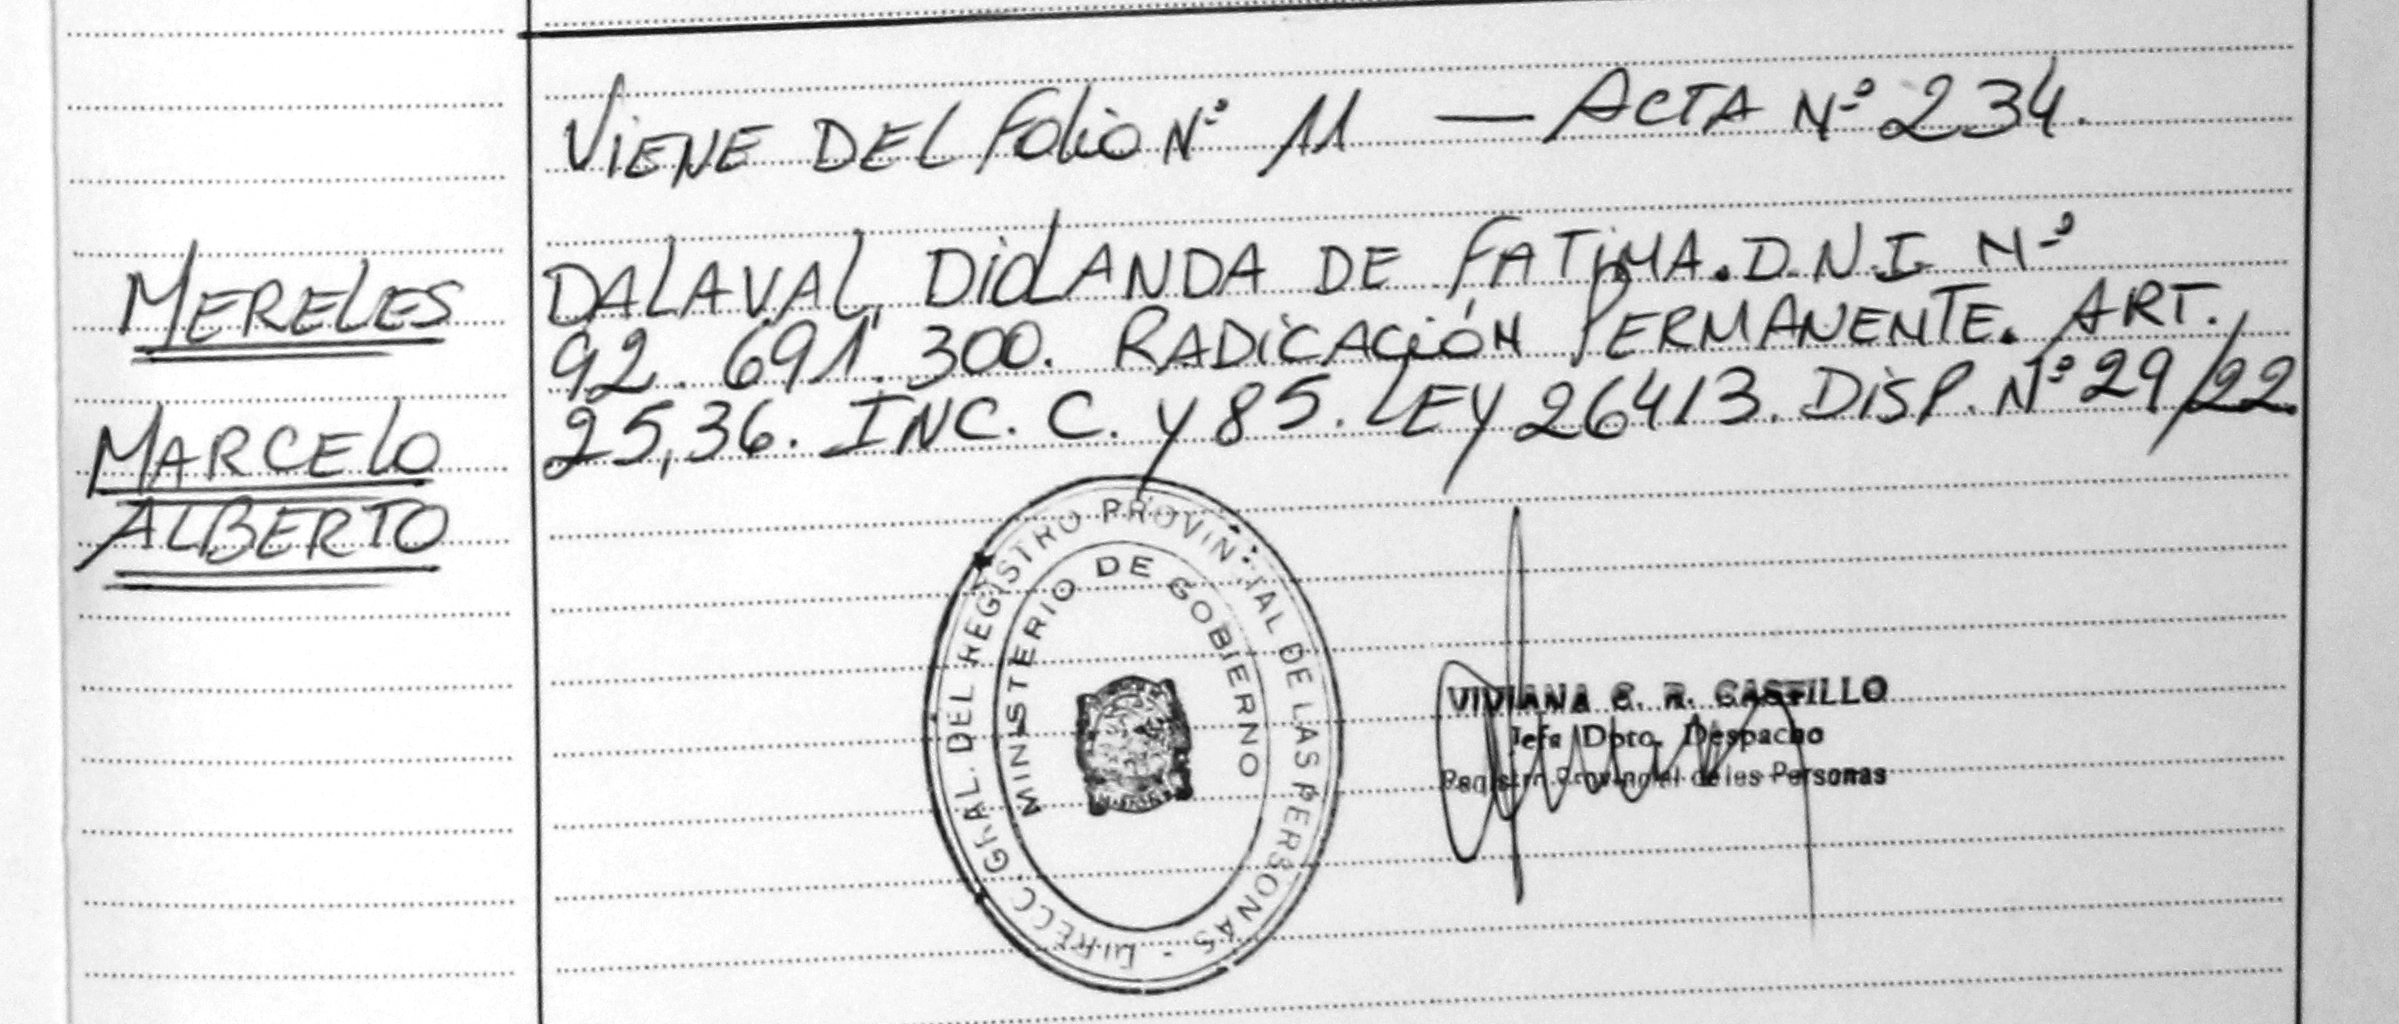 VIENE DEL FOLIO Nº 11 — ACTA Nº 234.
MERELES
MARCELO
ALBERTO
DALAVAL, DIOLANDA DE FATIMA. D.N.I Nº
92.691.300. RADICACIÓN PERMANENTE. ART.
25,36. INC. C. Y 85. LEY 26413. DISP. Nº 29/22
DIRECC GRAL. DEL REGISTRO PROVINCIAL DE LAS PERSONAS -
MINISTERIO DE GOBIERNO
VIVIANA C. R. CASTILLO
Jefa Dpto. Despacho
Registro Provincial de las Personas